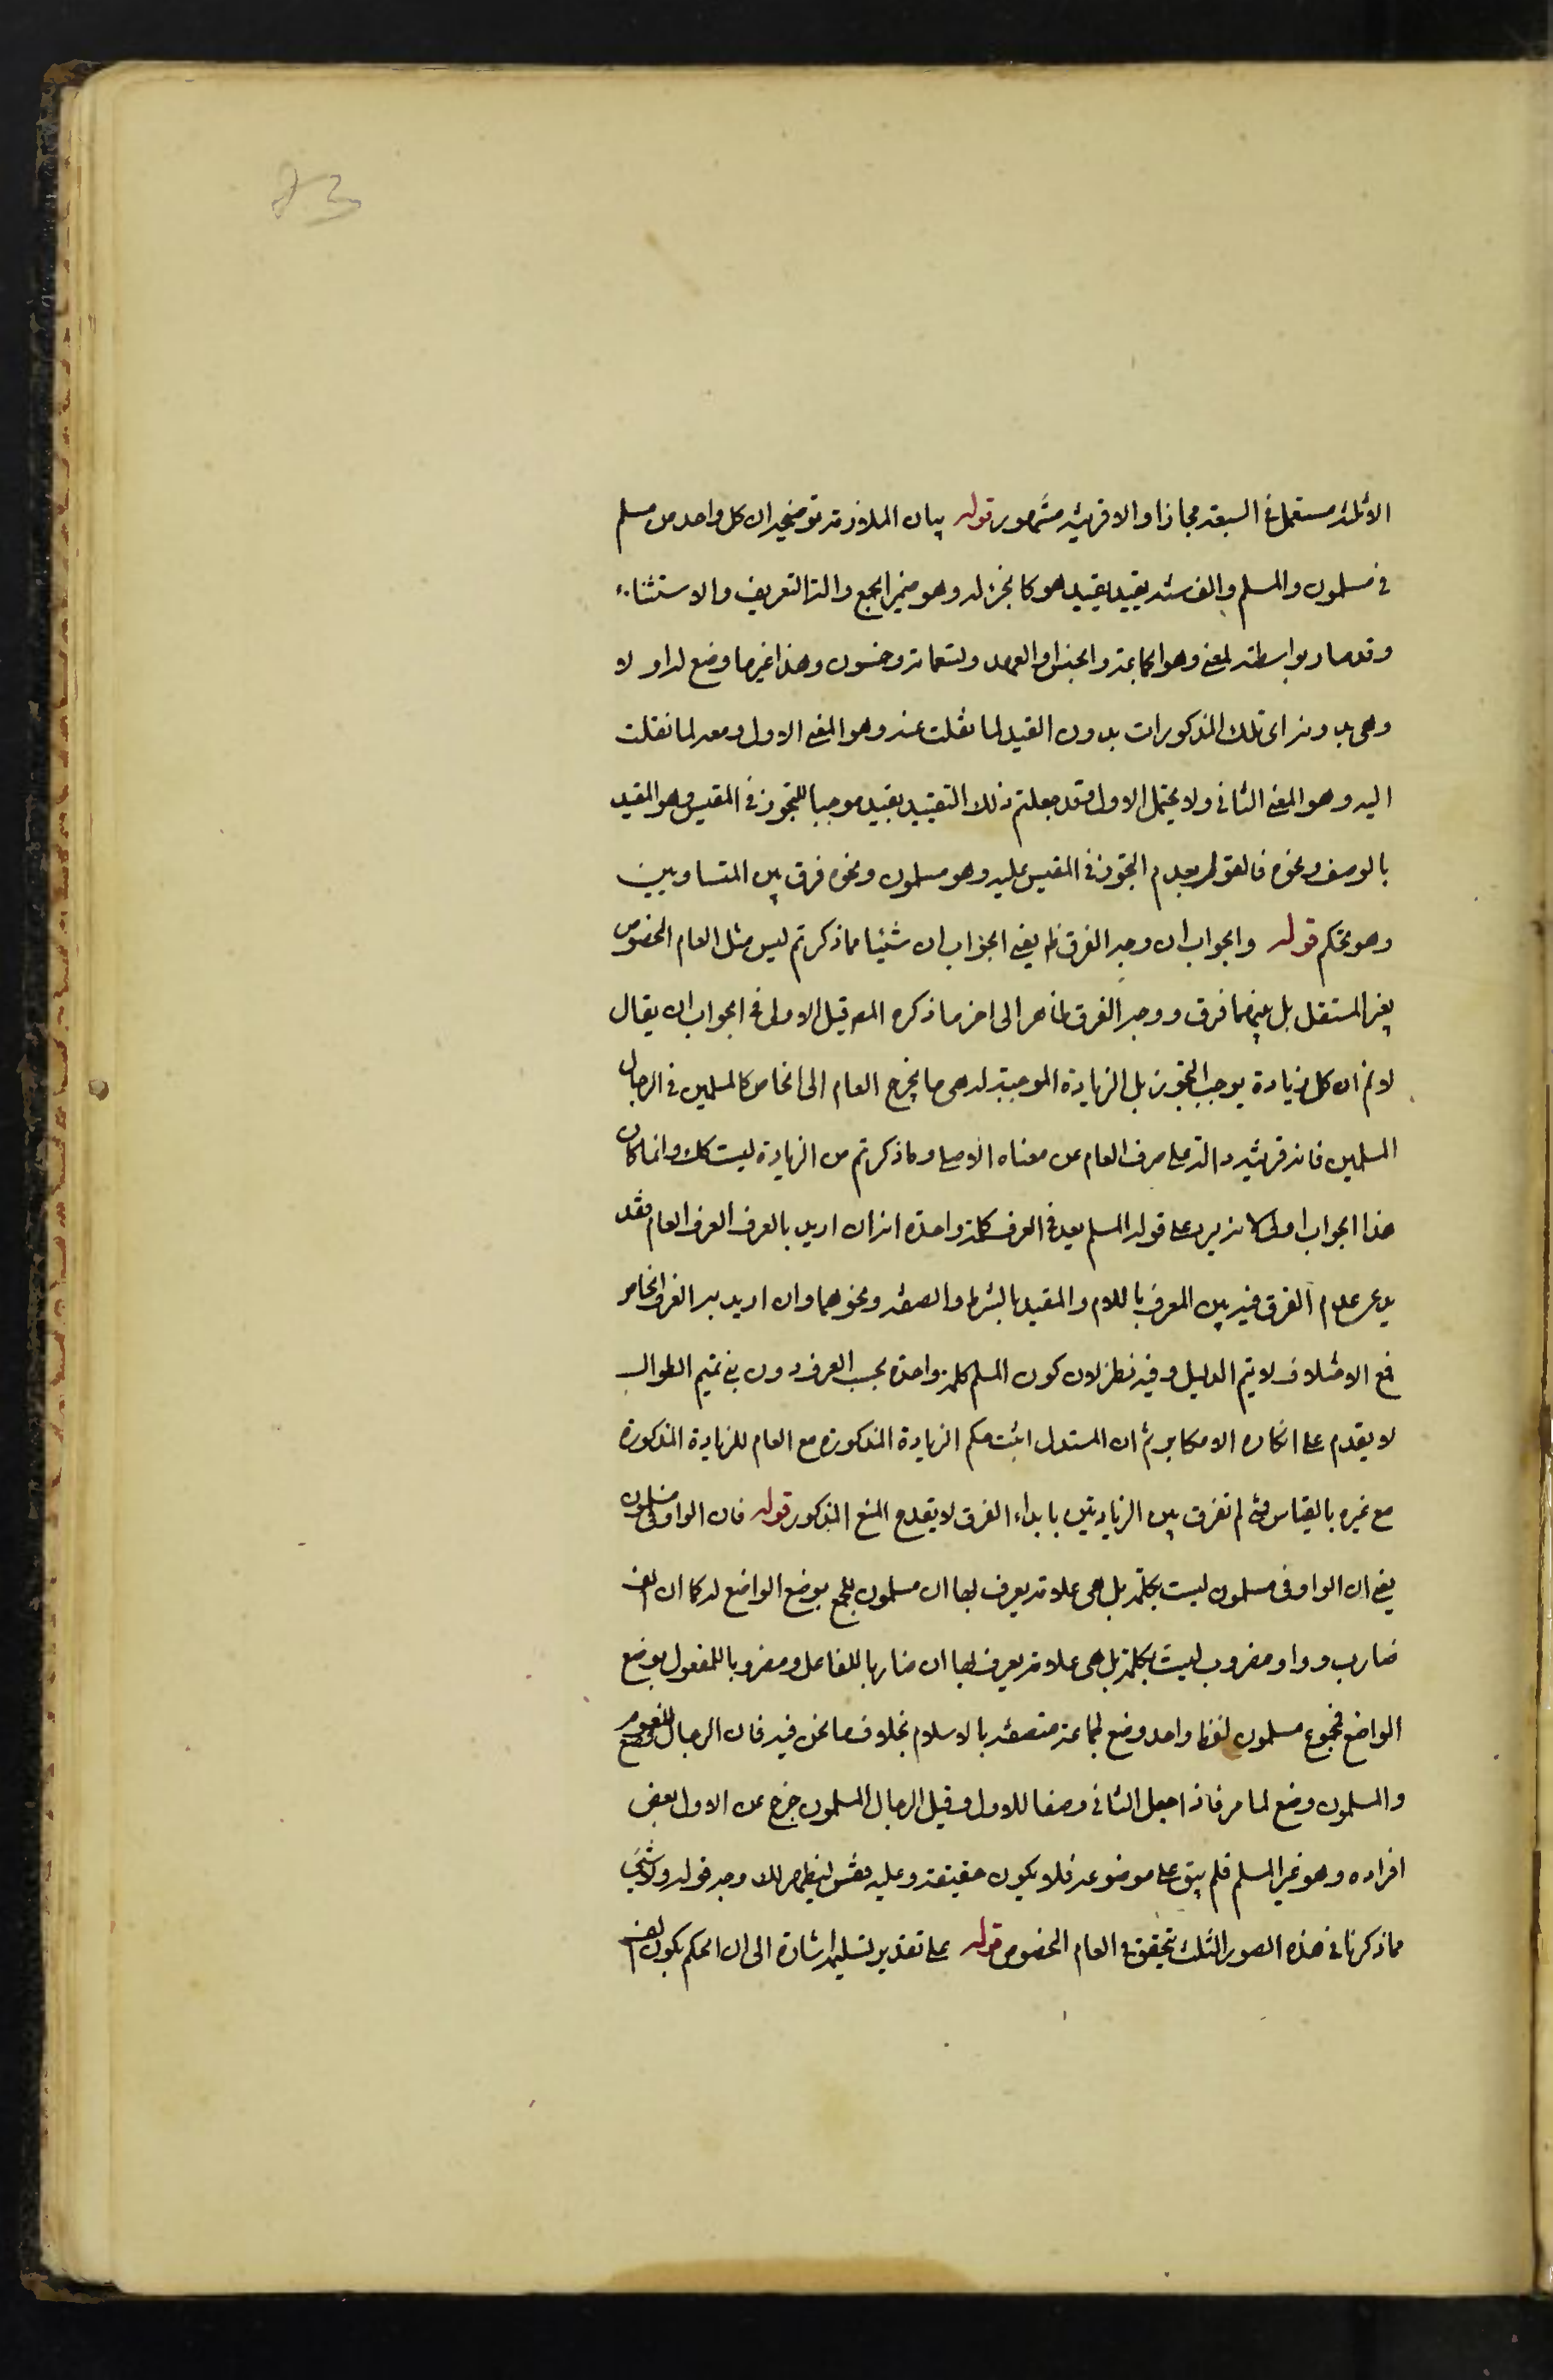 83
الا ثلثة مستعمل في السبعة مجازا والاقرينة مشهور قوله بيان الملازمة توضيحه ان كل واحد من مسلم
في مسلمون والمسلم والف سنة يقيد بقيد هو كالجزء له وهو ضمير الجمع والة التعريف والاستثناء
وقد صار بواسطته لمعنى وهو الجماعة والجنس او العهد وتسعمائة وخمسون وهذا غير ما وضع له اولا
وهى بدونه اى تلك المذكورات بدون القيد لما نقلت عنه وهو المعنى الاول ومعه لما نقلت
اليه وهو المعنى الثاني ولا يحتمل الاول وقد جعلتم ذلك التقييد بقيد موجبا للتجوز في المقيس وهو المقيد
بالوصف ونحوه فالقول بعدم التجوز في المقيس عليه وهو مسلمون ونحوه فرق بين المتساويين
وهو تحكم قوله والجواب ان وجه الفرق ظ يعني الجواب ان شيئا مما ذكرتم ليس مثل العام المخصوص
بغير المستقل بل بينهما فرق ووجه الفرق ظاهر الى اخر ما ذكره المصه قيل الاولى في الجواب ان يقال
لا نم ان كل زيادة يوجب التجوز بل الزيادة الموجبة له هى ما يخرج العام الى الخاص كالمسلمين في الرجال
المسلمين فانه قرينة دالة على صرف العام عن معناه الاصلي وما ذكرتم من الزيادة ليست كك وانما كان
هذا الجواب اولى لانه يرد على قوله المسلم يعد في العرف كلمة واحدة انه ان اريد بالعرف العرف العام فقد
يدعى عدم الفرق فيه بين المعرف باللام والمقيد بالشرط والصفة ونحوهما وان اريد به العرف الخاص
فمع الاختلاف لا يتم الدليل وفيه نظر لان كون المسلم كلمة واحدة بحسب العرف دون بني تميم الطوال
لا يقدم على انكاره الا مكابر ثم ان المستدل اثبت حكم الزيادة المذكورة مع العام للزيادة المذكورة
مع غيره بالقياس لم نفرق بين الزيادتين بابداء الفرق لا يقدح المنع المذكور قوله فان الواو في مسلمون
يعني ان الواو في مسلمون ليست بكلمة بل هى علامة يعرف بها ان مسلمون للجمع بوضع الواضع له كما ان الف
ضارب وواو مضروب ليست بكلمة بل هى علامة يعرف بها ان ضاربا للفاعل ومضروبا للمفعول بوضع
الواضع فمجموع مسلمون لفظ واحد وضع لجماعة متصفة بالاسلام بخلاف ما نحن فيه فان الرجال وضع للعموم
والمسلمون وضع لما مر فاذا جعل الثاني وصفا للاول وقيل الرجال المسلمون خرج عن الاول بعض
افراده وهو غير المسلم فلم يبق على موضوعه فلا يكون حقيقة وعليه فقس ليظهر لك وجه قوله ولا شيء
مما ذكرنا في هذه الصور الثلث يتحقق في العام المخصوص قوله على تقدير تسليمه اشارة الى ان الحكم بكون لفظ